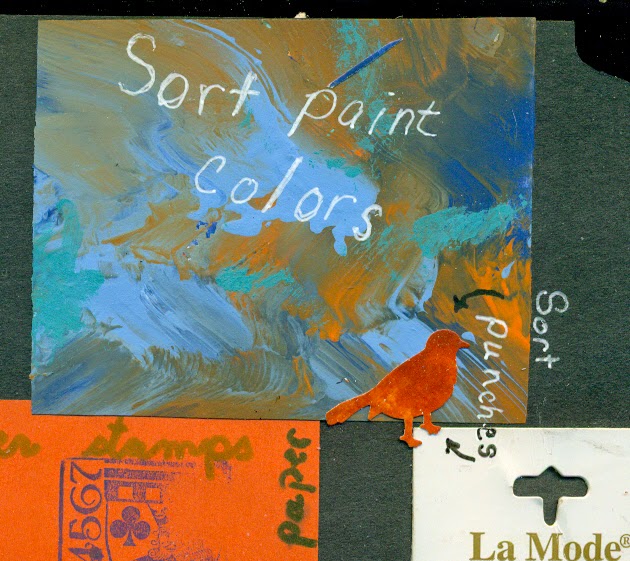 Sort paint
colors
Sort
punches
er stamps
paper
4567
La Mode®